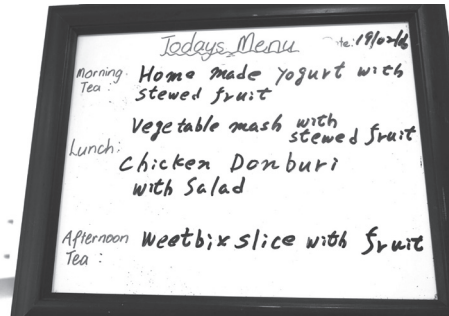 Todays Menu
Morning Home made yogurt with
Tea: stewed fruit
Vegetable mash with
stewed fruit
Lunch:
Chicken Donburi
with Salad
Afternoon Weetbix slice with fruit
Tea: